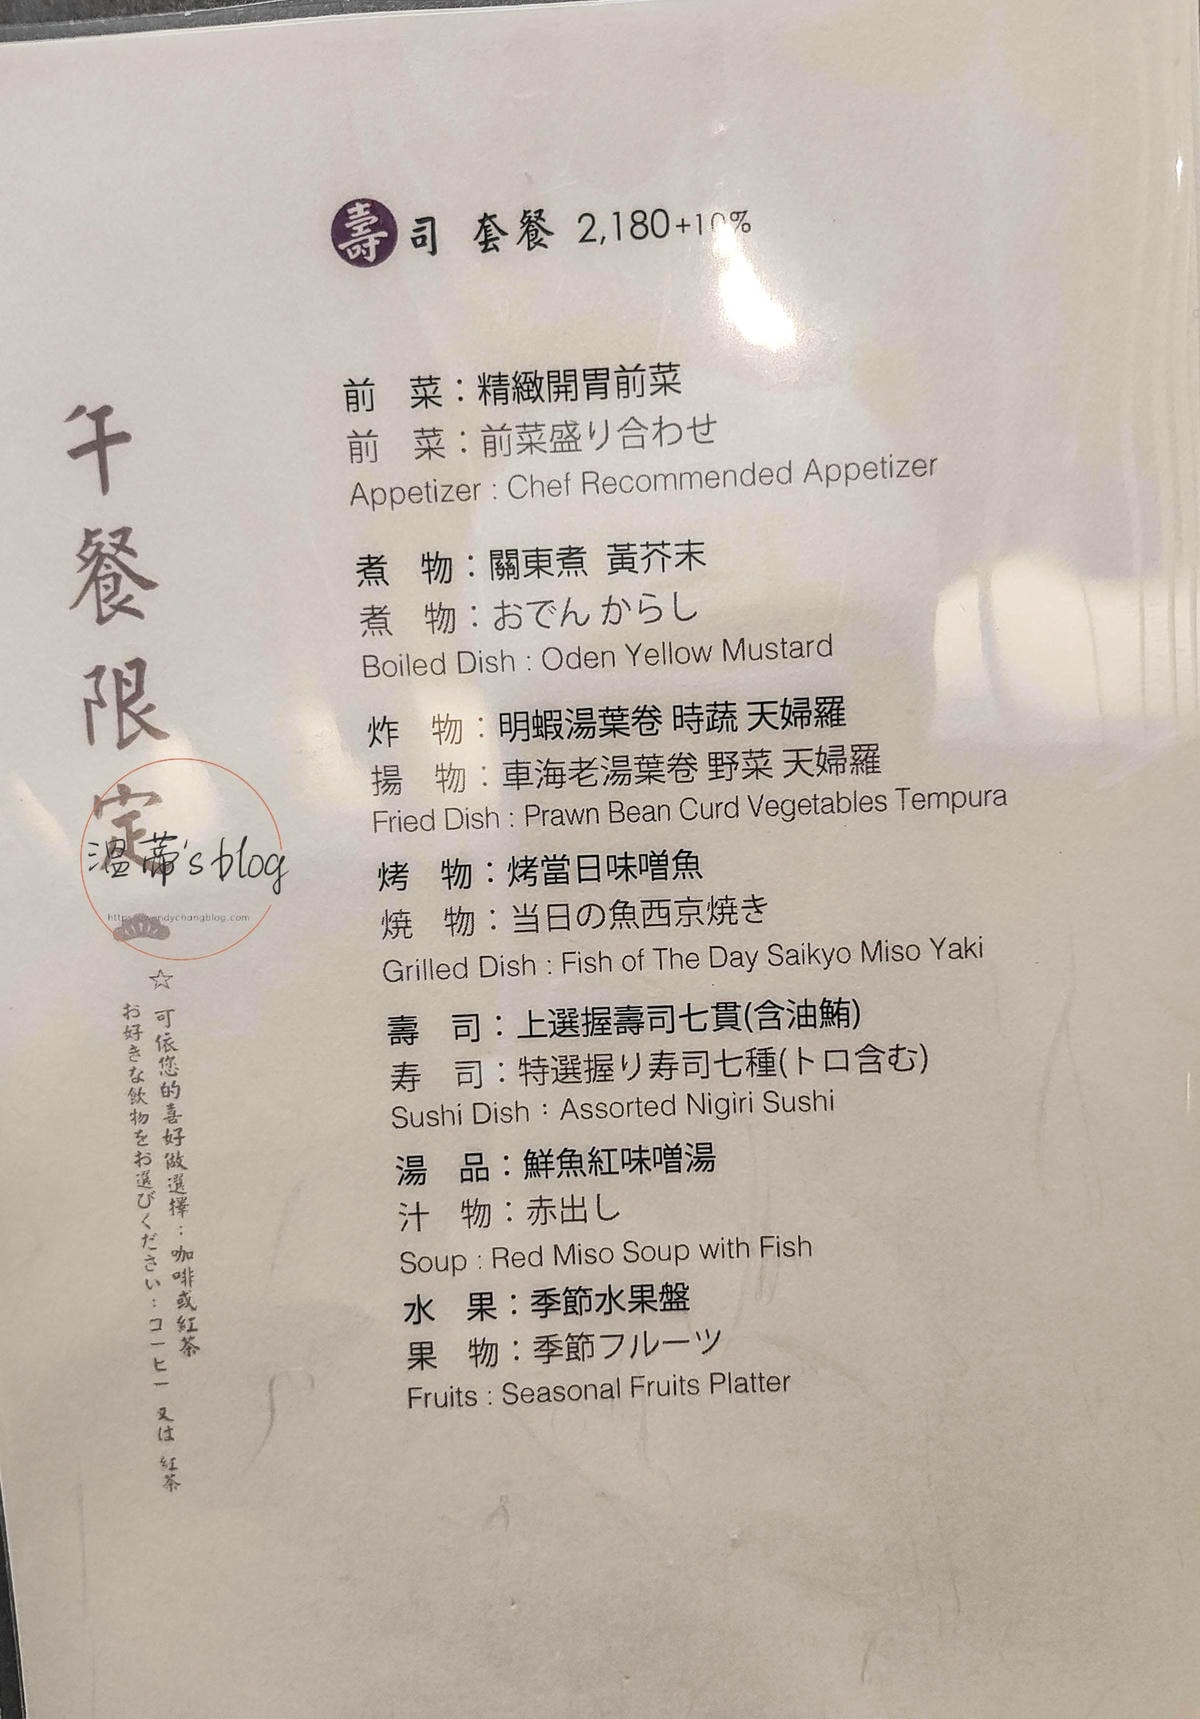 壽司 套餐 2,180+10%
前 菜：精緻開胃前菜
前 菜：前菜盛り合わせ
Appetizer : Chef Recommended Appetizer
煮 物：關東煮 黃芥末
煮 物：おでん からし
Boiled Dish : Oden Yellow Mustard
炸 物：明蝦湯葉卷 時蔬 天婦羅
揚 物：車海老湯葉卷 野菜 天婦羅
Fried Dish : Prawn Bean Curd Vegetables Tempura
烤 物：烤當日味噌魚
焼 物：当日の魚西京焼き
Grilled Dish : Fish of The Day Saikyo Miso Yaki
壽 司：上選握壽司七貫(含油鮪)
寿 司：特選握り寿司七種(トロ含む)
Sushi Dish：Assorted Nigiri Sushi
湯 品：鮮魚紅味噌湯
汁 物：赤出し
Soup : Red Miso Soup with Fish
水 果：季節水果盤
果 物：季節フルーツ
Fruits : Seasonal Fruits Platter
午餐限定
溫蒂's blog
https://wendychangblog.com
☆可依您的喜好做選擇：咖啡或紅茶
お好きな飲物をお選びください：コーヒー 又は 紅茶